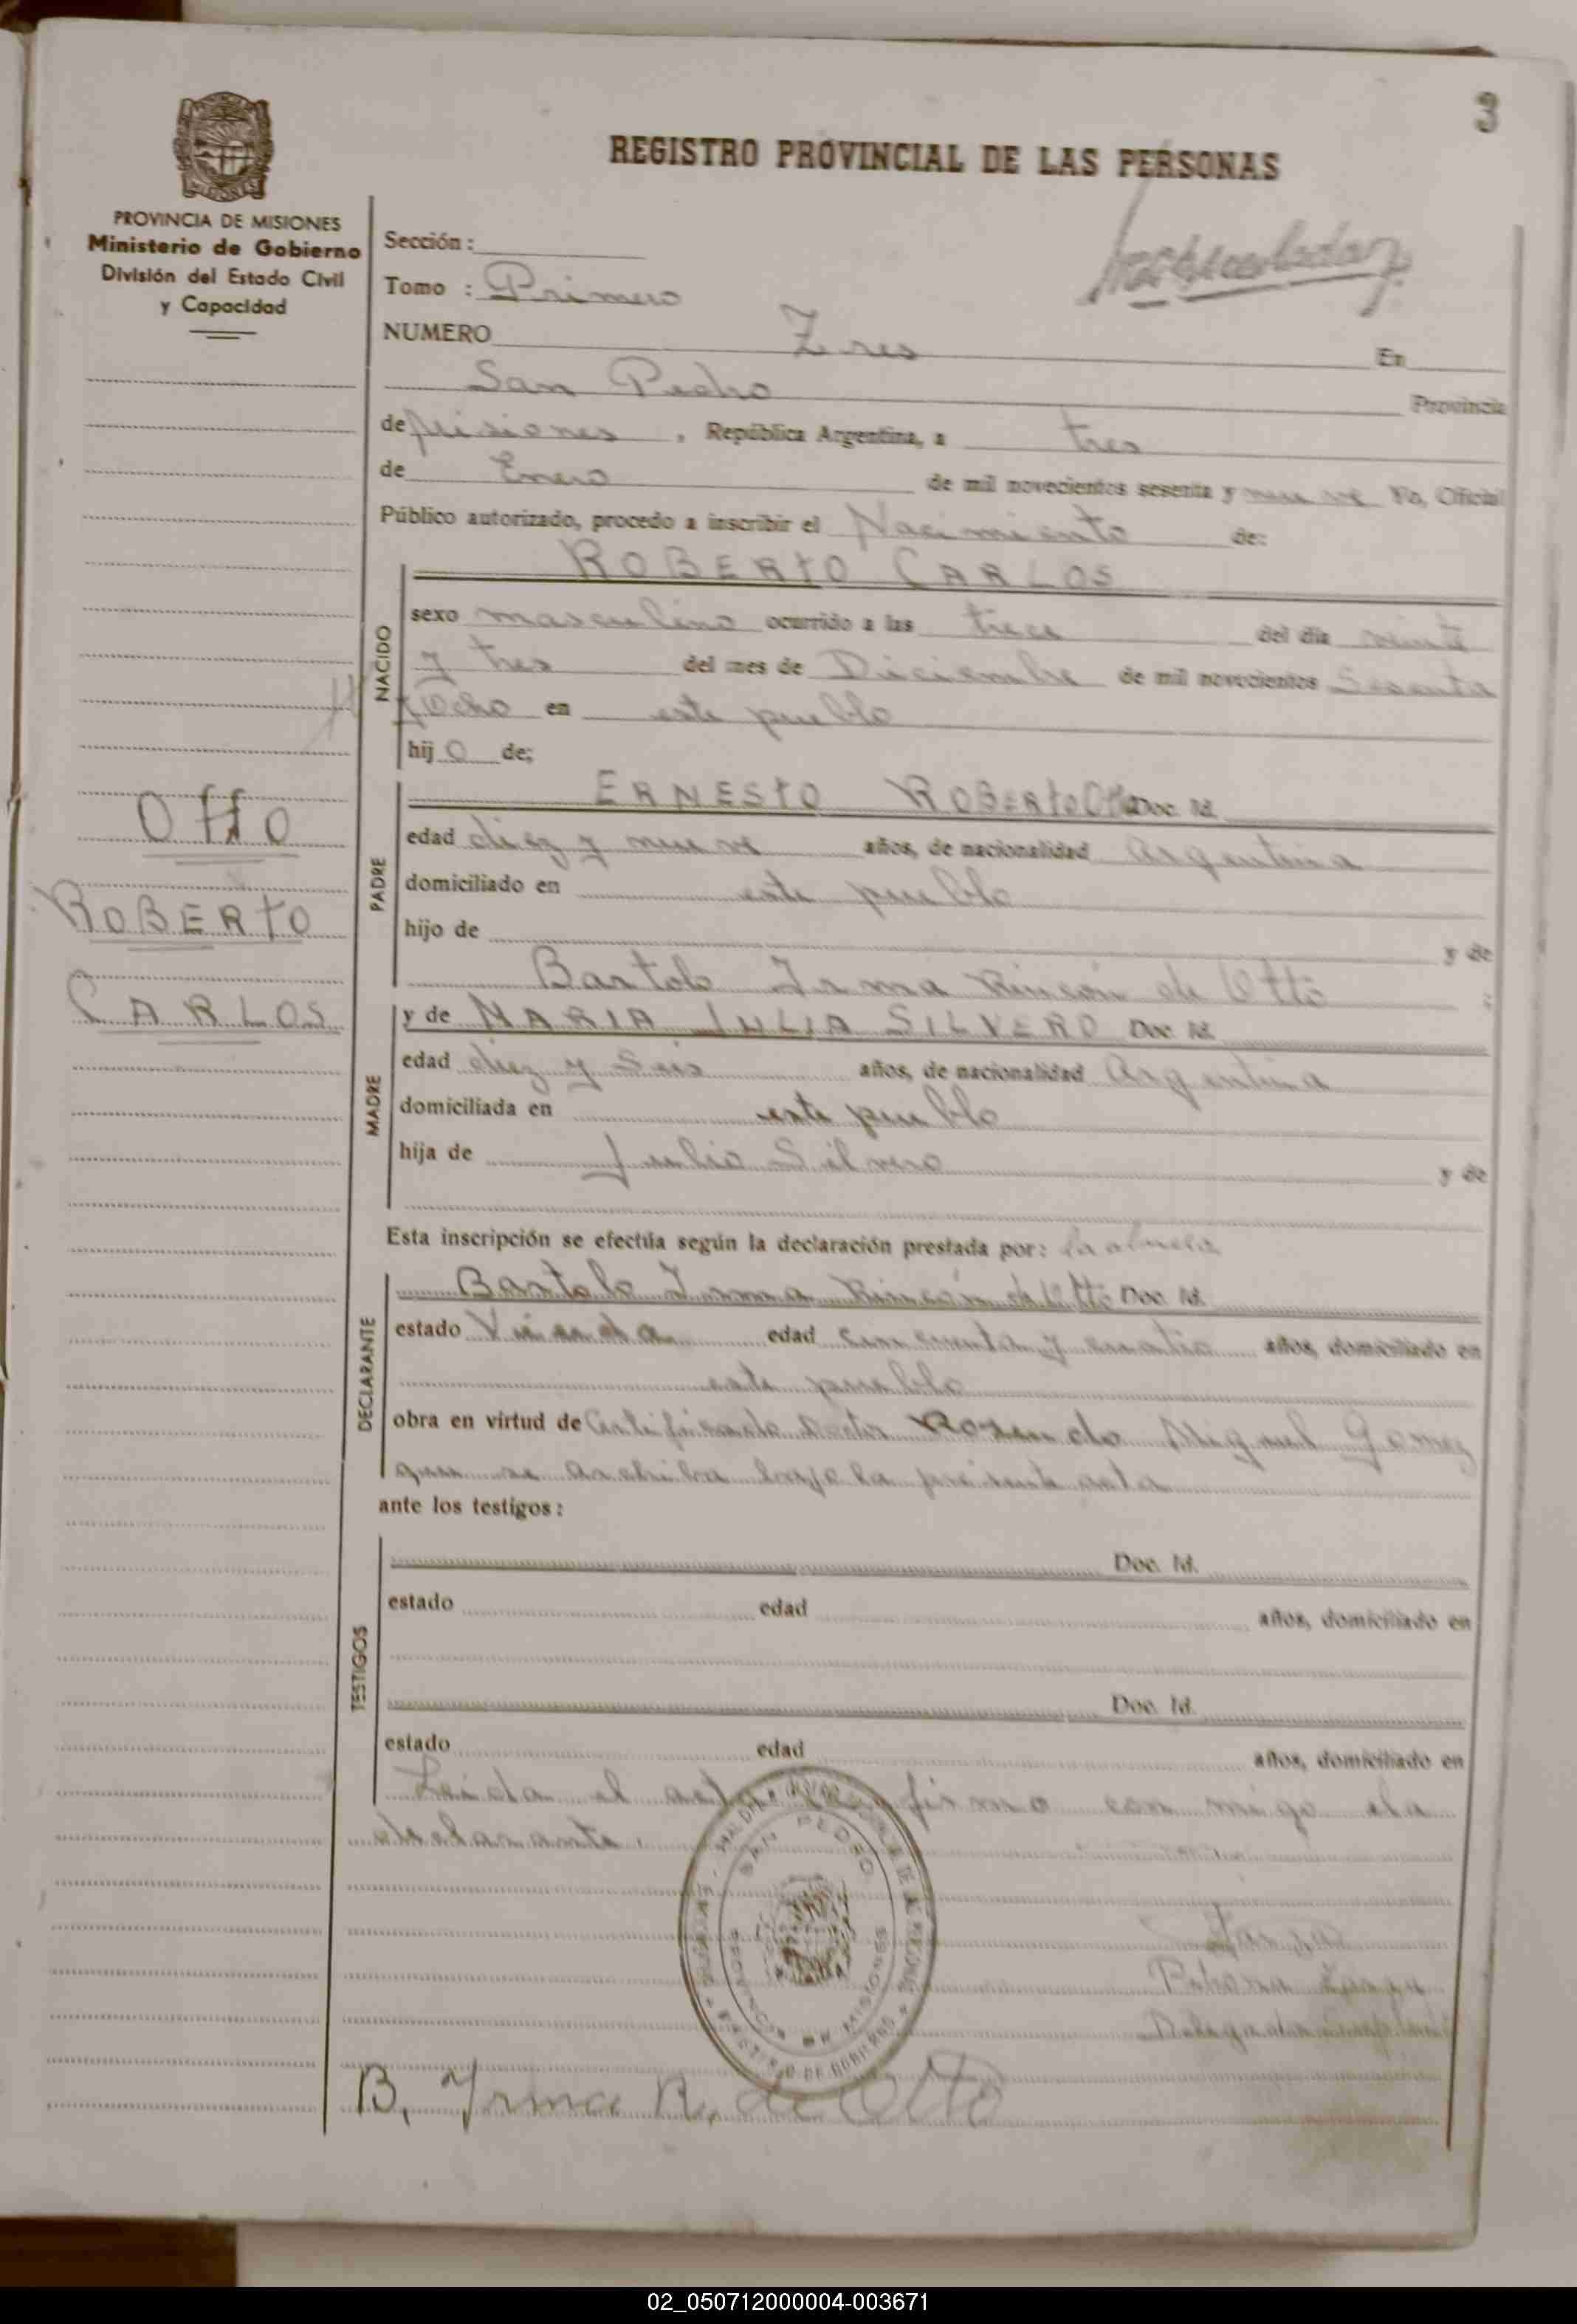 3
REGISTRO PROVINCIAL DE LAS PERSONAS
PROVINCIA DE MISIONES
Ministerio de Gobierno
División del Estado Civil
y Capacidad
Sección:
Tomo : Primero
NUMERO Tres En
San Pedro Provincia
de Misiones, República Argentina, a tres
de Enero de mil novecientos sesenta y nueve Yo, Oficial
Público autorizado, procedo a inscribir el Nacimiento de:
ROBERTO CARLOS
NACIDO
sexo masculino ocurrido a las trece del día veinte
y tres del mes de Diciembre de mil novecientos Sesenta
y Ocho en este pueblo
hijo de;
Otto
ROBERTO
CARLOS
PADRE
ERNESTO ROBERTO Otto Doc. Id.
edad diez y nueve años, de nacionalidad Argentina
domiciliado en este pueblo
hijo de y de
Bartolo Irma Rincón de Otto ;
MADRE
y de MARIA JULIA SILVERO Doc. Id.
edad diez y Seis años, de nacionalidad Argentina
domiciliada en este pueblo
hija de Julio Silvero y de
Esta inscripción se efectúa según la declaración prestada por: la abuela
DECLARANTE
Bartolo Irma Rincón de Otto Doc. Id.
estado Viuda edad cincuenta y cuatro años, domiciliado en
este pueblo
obra en virtud de Certificado Doctor Rosendo Miguel Gomez
que se archiba bajo la presente acta
ante los testigos:
TESTIGOS
Doc. Id.
estado edad años, domiciliado en
Doc. Id.
estado edad años, domiciliado en
Leida el acta firmo con migo la
declarante.
SAN PEDRO
PROVINCIA DE MISIONES
B. Yrma R. de Otto
02_050712000004-003671